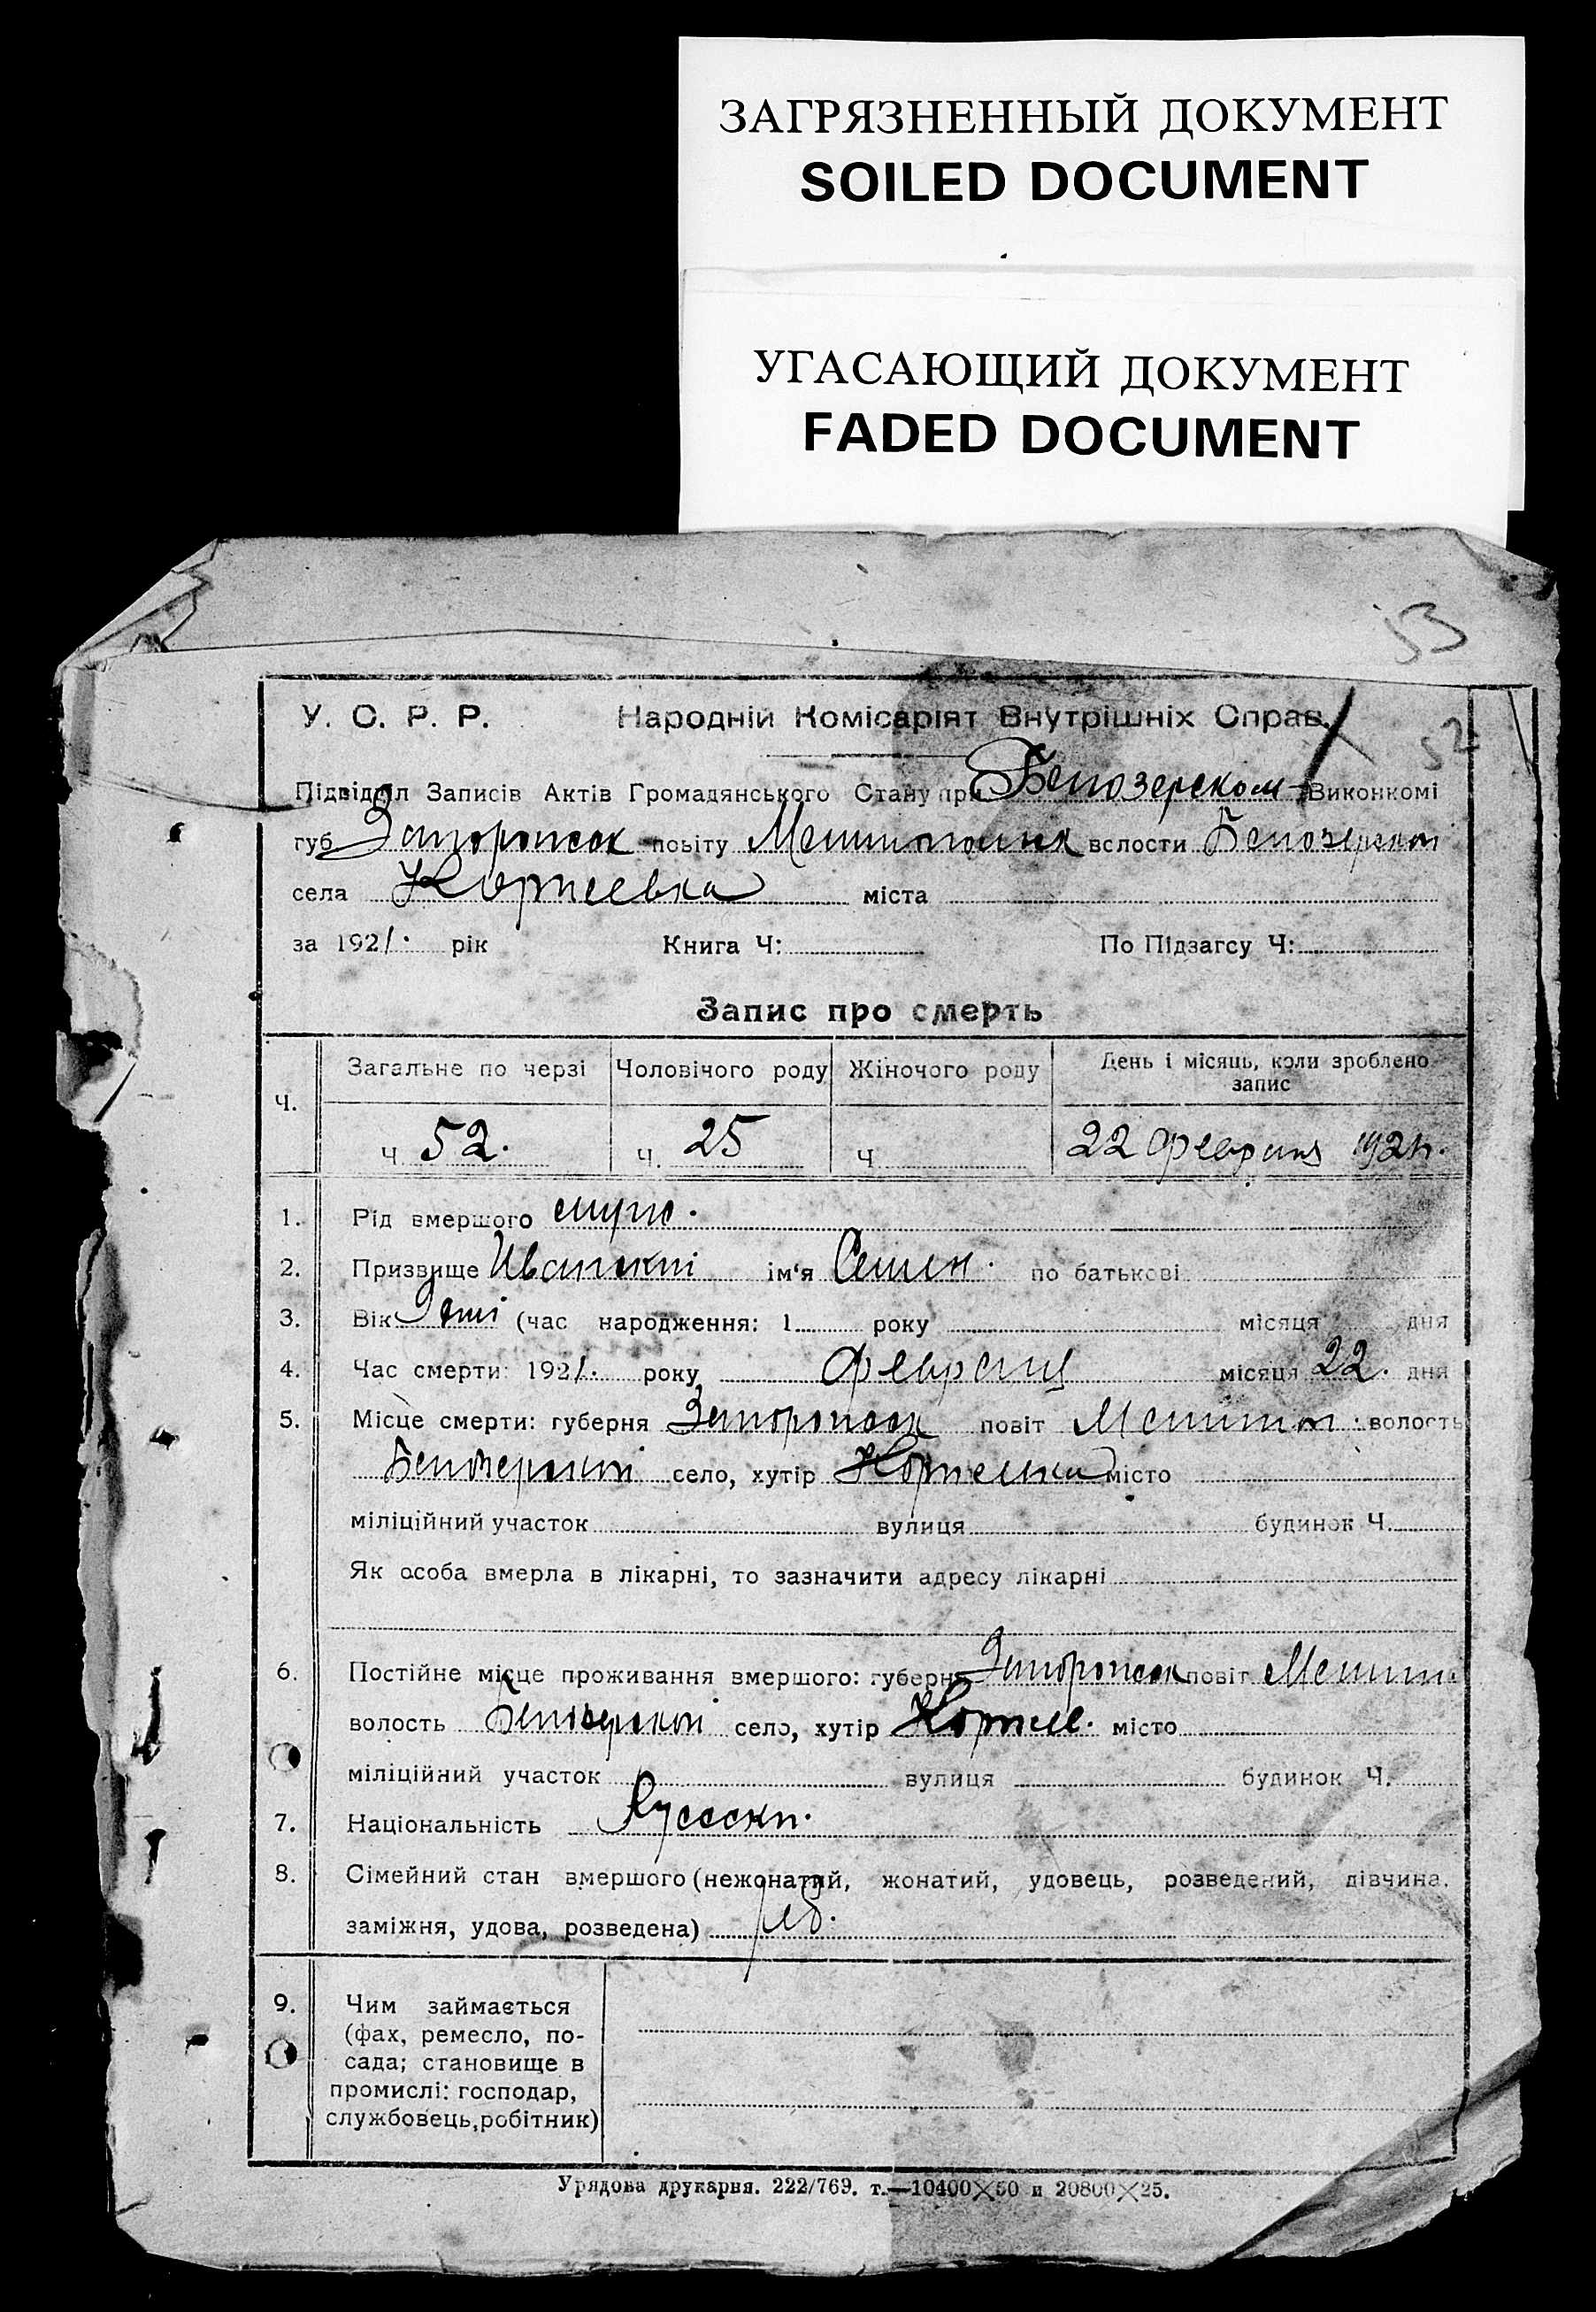 ЗАГРЯЗНЕННЫЙ ДОКУМЕНТ
SOILED DOCUMENT
УГАСАЮЩИЙ ДОКУМЕНТ
FADED DOCUMENT
53
52
У. С. Р. Р. Народній Комісаріят Внутрішніх Справ.
Підвідділ Записів Актів Громадянського Стану при Белозерском Виконкомі
губ. Запорожск повіту Мелитопольск волости Белозерской
села Корнеевка міста
за 1921. рік Книга Ч: По Підзагсу Ч:
Запис про смерть
Ч. Загальне по черзі Чоловічого роду Жіночого роду День і місяць, коли зроблено запис
Ч 52. Ч. 25 Ч 22 Февраля 1921г.
1. Рід вмершого
2. Призвище ім'я Семен. по батькові
3. Вік (час народження: 1 року місяця дня
4. Час смерти: 1921. року Февраля місяця 22. дня
5. Місце смерти: губерня Запорожск повіт Мелитоп. волость
Белозерской село, хутір Корнеевка місто
міліційний участок вулиця будинок Ч.
Як особа вмерла в лікарні, то зазначити адресу лікарні
6. Постійне місце проживання вмершого: губерня Запорожск повіт Мелит
волость Белозерской село, хутір Корнеев. місто
міліційний участок вулиця будинок Ч.
7. Національність Русски.
8. Сімейний стан вмершого (нежонатий, жонатий, удовець, розведений, дівчина,
заміжня, удова, розведена) реб.
9. Чим займається
(фах, ремесло, по-
сада; становище в
промислі: господар,
службовець, робітник)
Урядова друкарня. 222/769. т.—10400×50 и 20800×25.